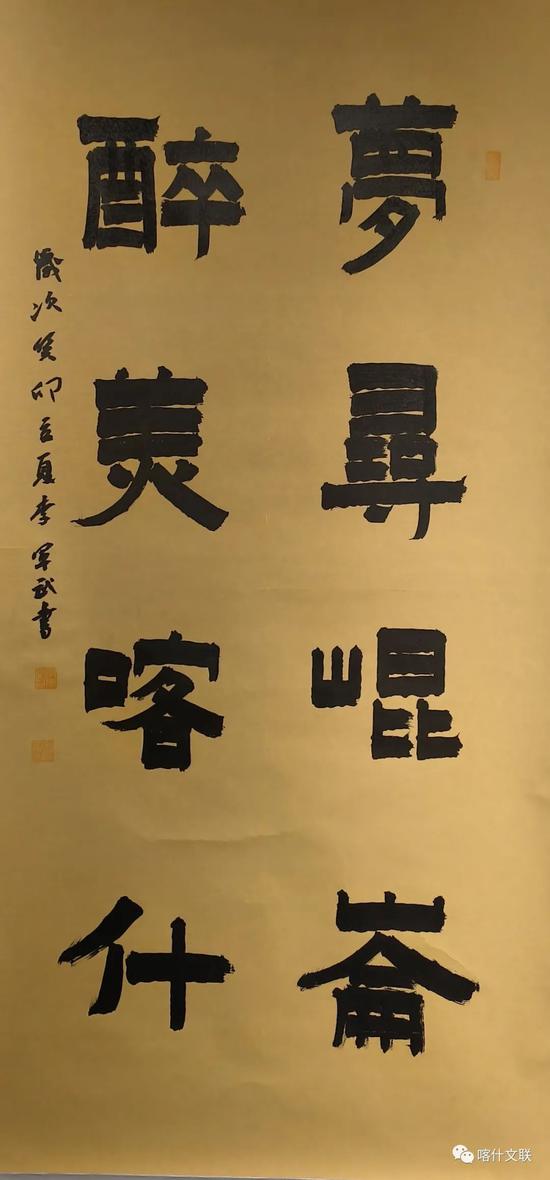 夢尋崐崙
醉美喀什
歲次癸卯立夏李军武書
喀什文联